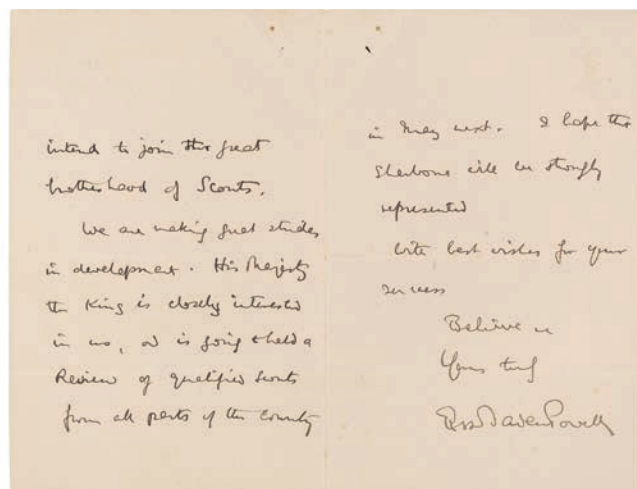 intend to join this great
brotherhood of Scouts.
We are making great strides
in development. His Majesty
the King is closely interested
in us, & is going to hold a
Review of qualified Scouts
from all parts of the County
in May next. I hope that
Sherborne will be strongly
represented
With best wishes for your
success
Believe me
Yours truly
Baden Powell